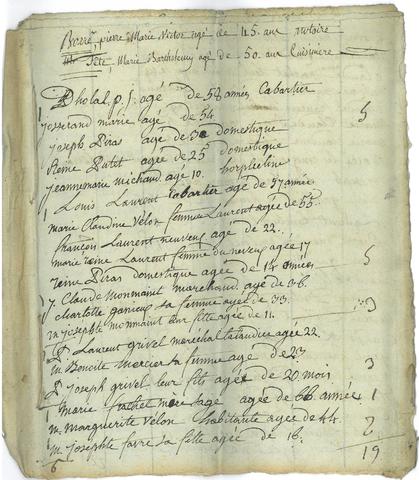 Borré, pierre Marie Victor agé de 45. ans notaire
Fété, Marie Barthelemy agé de 50. ans Cuisiniere
Dholal p. f. agé de 58 années Cabartier
josserand marie agé de 54. 5
joseph Piras agé de 30 domestique
Reine Putet agée de 25 domestique
jeannemarie michaud age 10. horpheline
1 Louis Laurent Cabartier agé de 57 année
marie Claudine Velon femme Laurent agée de 55.
françois Laurent neuveux agé de 22.
marie reine Laurent femme du neveux agée 17
reine Piras domestique agée de 14 années 5
j. Claude Monmainet marchaud agé de 36.
charlotte ganieux sa femme agée de 33.
m josephte monmainet leur fille agée de 11. 3
p. Laurent grivel maréchal taiaudie agée 22.
m. Benoite Mercier sa femme agé de 23.
p. joseph grivel leur fils agée de 20 mois. 3
1 Marie frachet mere age agée de 66 années 1
m. Marguerite Velon habitante agée de 44. 2
m. josephte favre sa fille agée de 16.
6 19